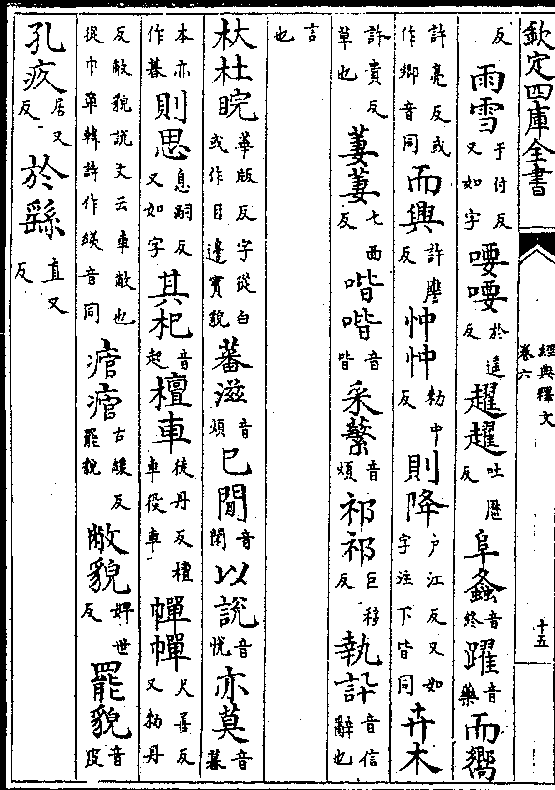 欽定四庫全書 經典釋文 卷六 十五
反 雨雪 于付反又如字 喓喓 於遙反 趯趯 吐歷反 阜螽 音終 躍 音藥 而嚮
許亮反或作鄉音同 而興 許譍反 忡忡 勑中反 則降 户江反又如字注下皆同 卉木
許貴反草也 萋萋 七西反 喈喈 音皆 采蘩 音煩 祁祁 巨移反 執訊 音信辭也
言也
杕杜睆 華版反字從白或作目邊實貌 蕃滋 音煩 已閒 音閑 以說 音悅 亦莫 音暮
本亦作暮 則思 息嗣反又如字 其杞 音起 檀車 徒丹反檀車役車 幝幝 尺善反又勑丹
反敝貌說文云車敝也從巾單韓詩作音同 痯痯 古緩反罷貌 敝貌 婢世反 罷貌 音皮
孔疚 居又反 於繇 直又反